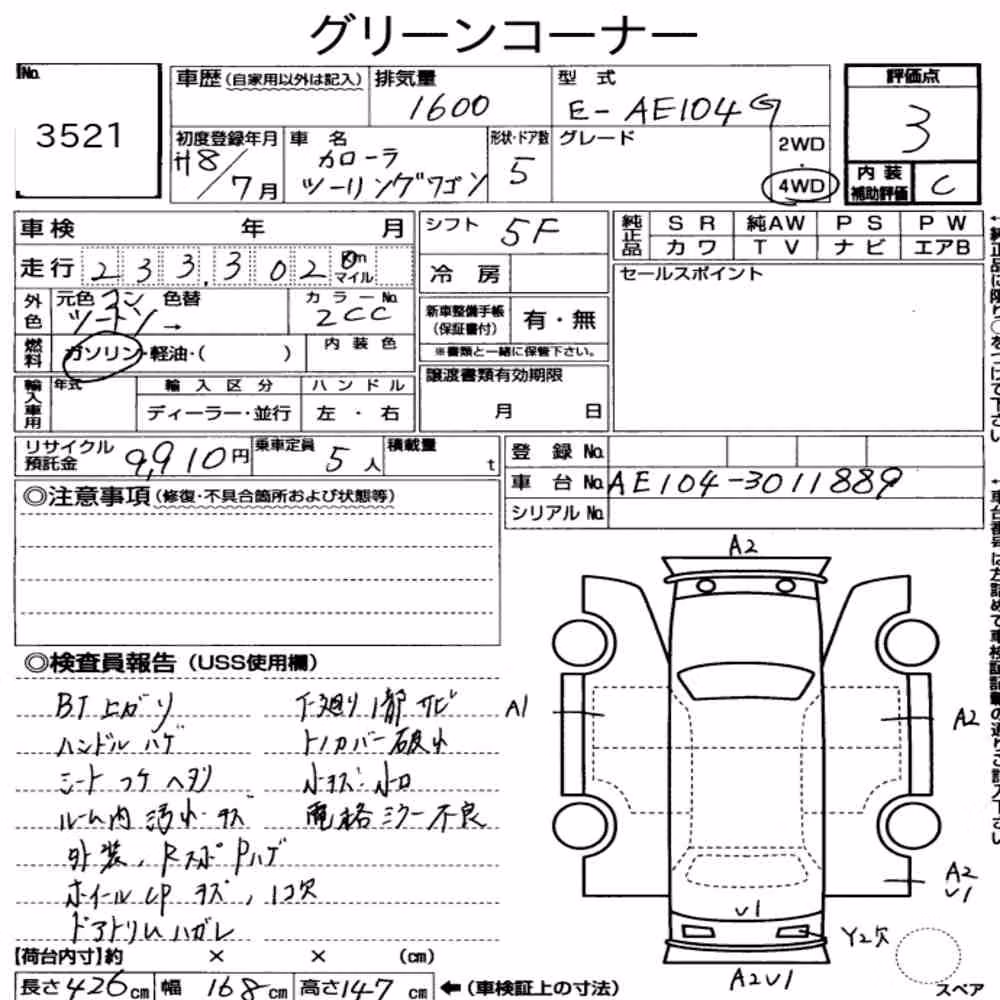 グリーンコーナー
No.
3521
車歴(自家用以外は記入)
排気量
1600
型 式
E-AE104G
評価点
3
初度登録年月
H8/7月
車 名
カローラ
ツーリングワゴン
形状・ドア数
5
グレード
2WD
・
4WD
内 装
補助評価
C
車検 年 月
走行 233,302 Km
マイル
シフト 5F
冷 房
純正品
S R 純AW P S P W
カワ T V ナビ エアB
セールスポイント
外色
元色 色替
ツートン →
カラーNo.
2CC
新車整備手帳
(保証書付)
有・無
※書類と一緒に保管下さい。
燃料
ガソリン・軽油・( )
内 装 色
輸入車用
年式
輸 入 区 分
ハ ン ド ル
ディーラー・並行
左 ・ 右
譲渡書類有効期限
月 日
リサイクル
預託金
9,910円
乗車定員
5人
積載量
t
登 録 No.
車 台 No. AE104-3011889
シリアル No.
◎注意事項(修復・不具合箇所および状態等)
◎検査員報告(USS使用欄)
BT上ガリ
ハンドルハゲ
シートコゲ ヘタリ
ルーム内 汚れ・キズ
外装、Rスポ Pハゲ
ホイールCP キズ、1コ欠
ドアトリムハガレ
下廻り1部サビ
トノカバー破れ
電格ミラー不良
A2
A1
A2
A2
U1
U1
Y2欠
A2U1
スペア
【荷台内寸】約 × × (cm)
長さ426cm 幅 168cm 高さ147cm
←(車検証上の寸法)
↓純正品に限り○をつけて下さい
↓車台番号は左詰めで車検証記載の通りご記入下さい